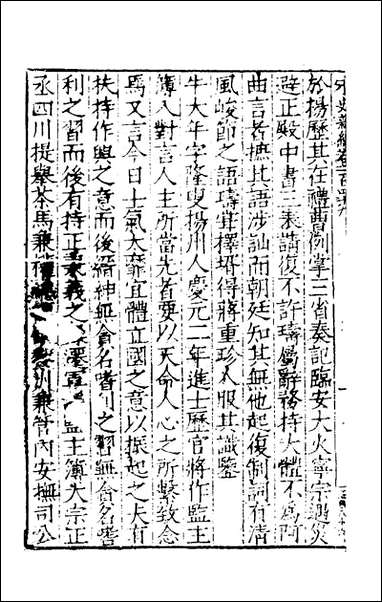 宋史新編卷一百四九
於揚歷其在禮曹例掌三省奏記臨安大火寧宗避災
避正殿中書三表請復不許璹屬辭務持大體不為阿
曲言者摭其語涉訕而朝廷知其無他起復制詞有清
風峻節之語璹嘗擇壻得將重珍人服其識鑒
牛大年字隆叟揚州人慶元二年進士歷官將作監主
簿入對言人主所當先者要以天命人心之所繫致念
焉又言今日士氣太靡宜體立國之意以振起之大有
扶持作興之意而後縉紳無貪名嗜利之習無貪名嗜
利之習而後有持正秉義之遷監主簿大宗正
丞四川提舉茶馬兼權兼管內安撫司公